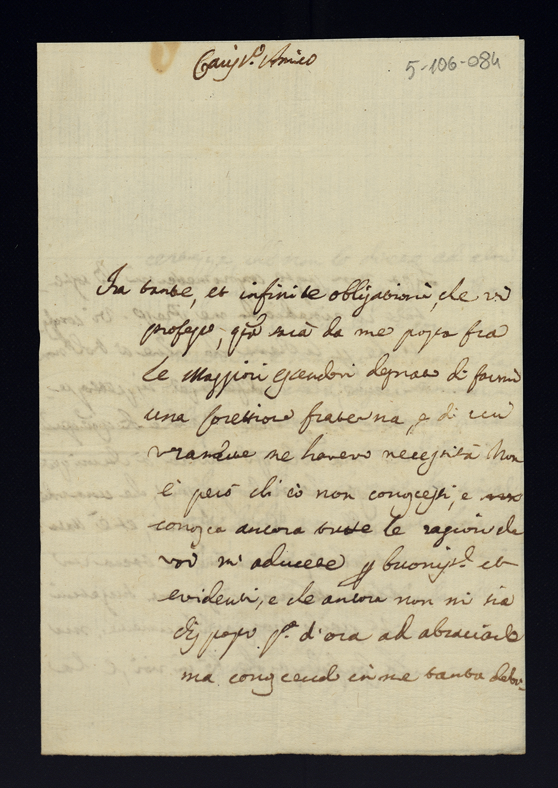 Cariss.o Amico
5-106-084
Fra tante, et infinite obligationi, che vi
professo, q.ta sarà da me posta fra
le Maggiori essendovi degnato di farmi
una fraterna, e di cui
veramente ne havevo necessità Non
è però ch'io non conoscessi, e
conosca ancora tutte le ragioni che
voi m'adducete p buoniss.e et
evidenti, e che ancora non mi sia
disposto p.a d'ora ad abraciarle
ma conoscendo in me tanta